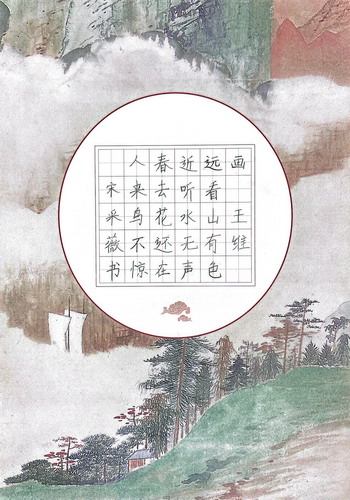 画 王维
远看山有色
近听水无声
春去花还在
人来鸟不惊
宋采薇书